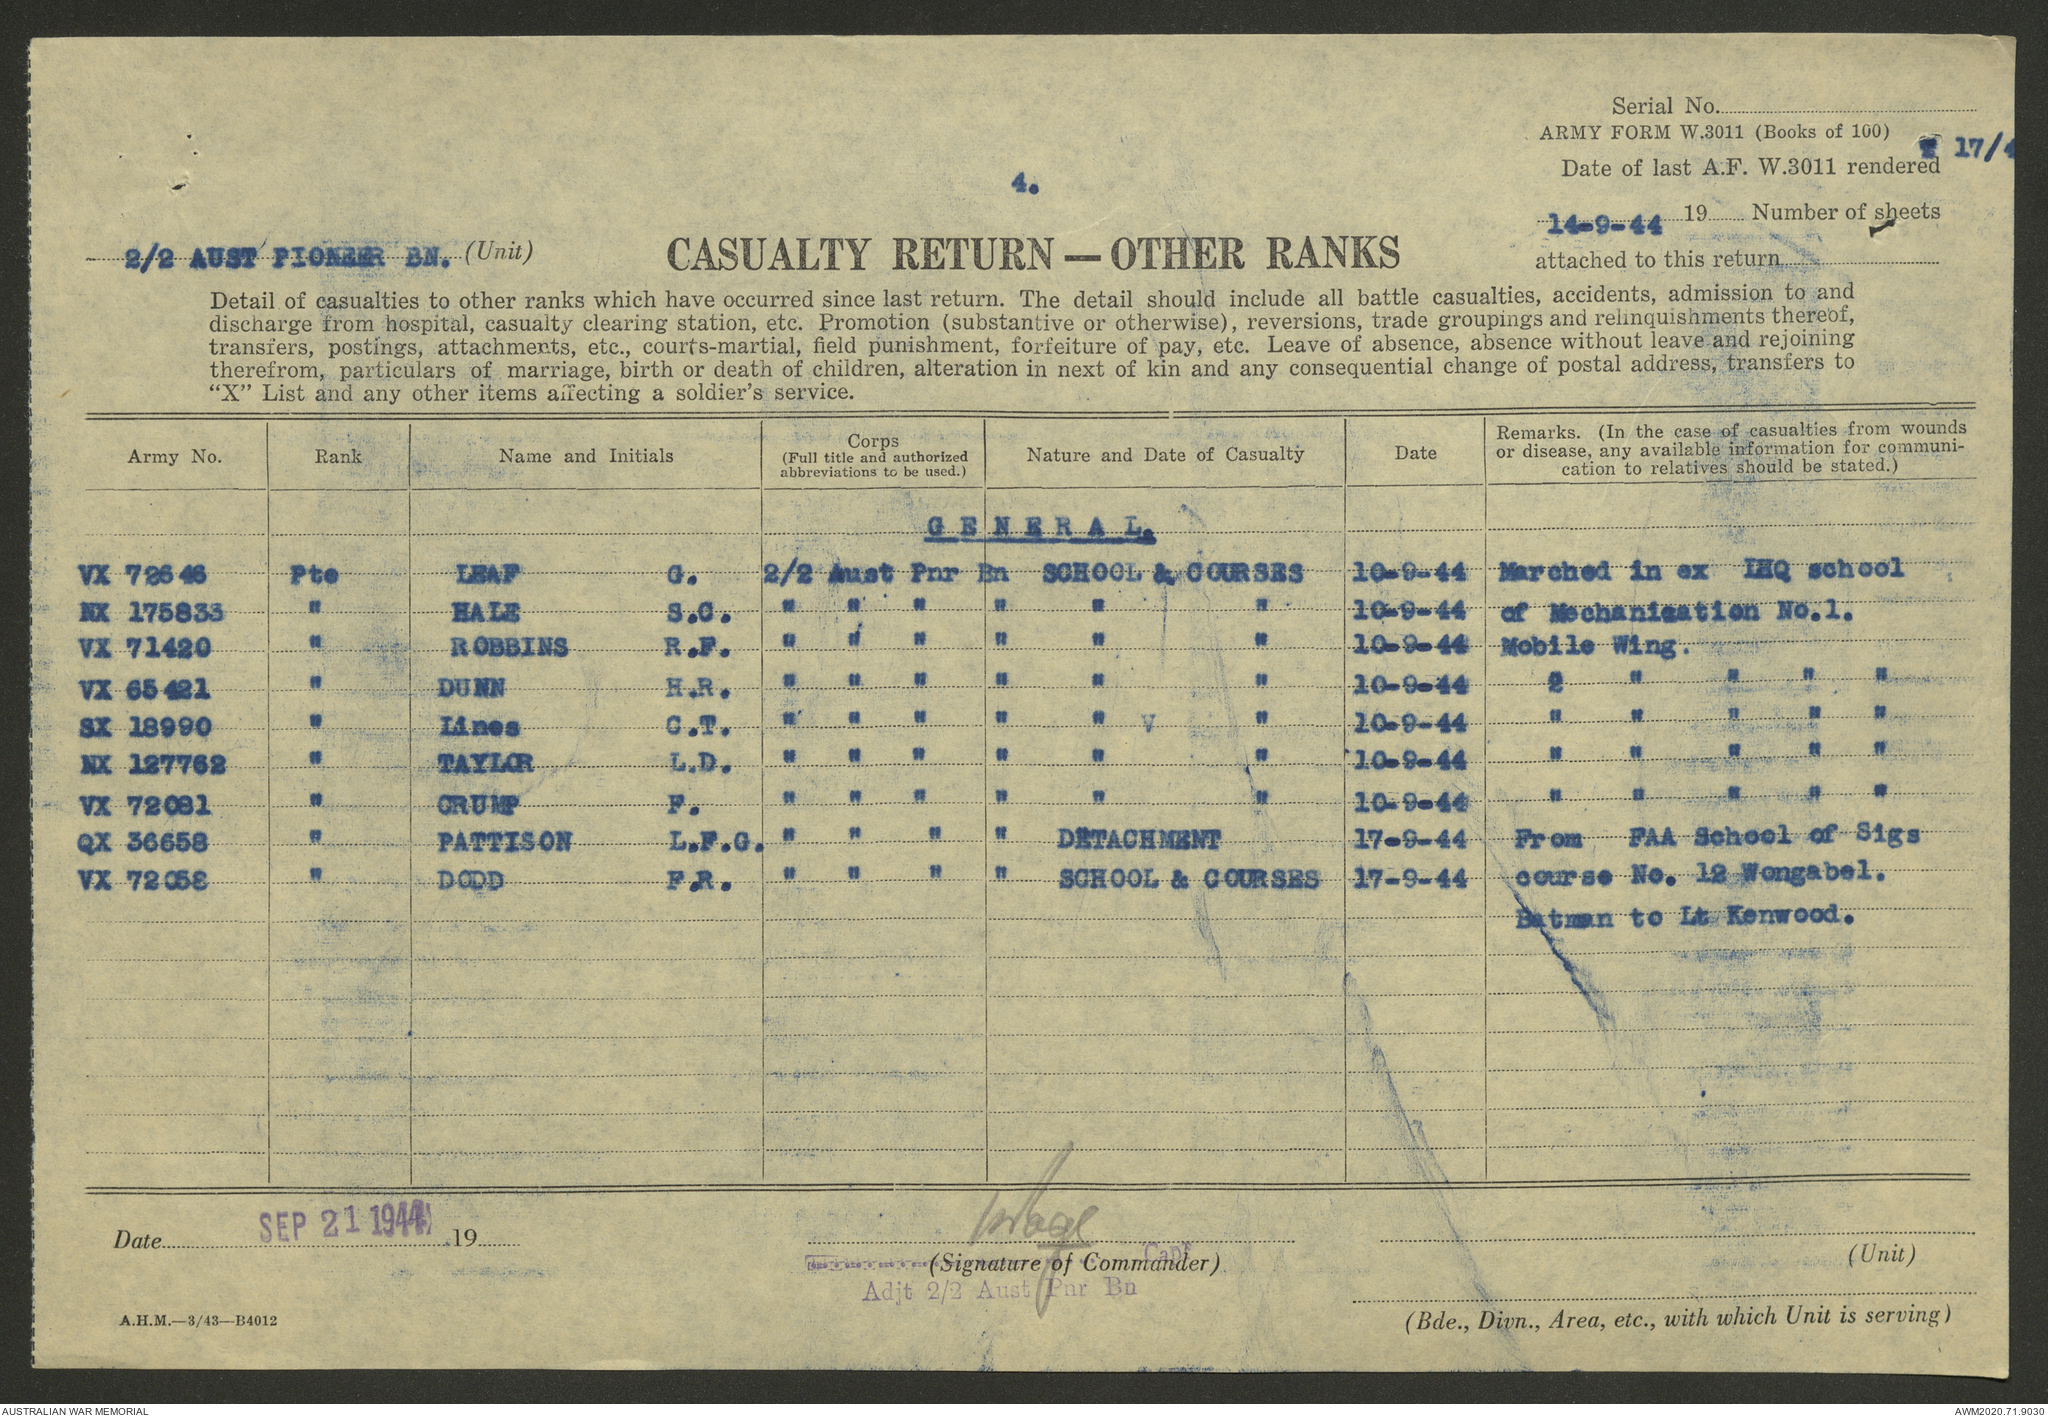 Serial No.
ARMY FORM W.3011 (Books of 100)
17/4
Date of last A.F. W.3011 rendered
4.
14-9-44 19 Number of sheets
2/2 AUST PIONEER BN. (Unit)
CASUALTY RETURN — OTHER RANKS
attached to this return
Detail of casualties to other ranks which have occurred since last return. The detail should include all battle casualties, accidents, admission to and
discharge from hospital, casualty clearing station, etc. Promotion (substantive or otherwise), reversions, trade groupings and relinquishments thereof,
transfers, postings, attachments, etc., courts-martial, field punishment, forfeiture of pay, etc. Leave of absence, absence without leave and rejoining
therefrom, particulars of marriage, birth or death of children, alteration in next of kin and any consequential change of postal address, transfers to
"X" List and any other items affecting a soldier's service.
Army No. Rank Name and Initials Corps (Full title and authorized abbreviations to be used.) Nature and Date of Casualty Date Remarks. (In the case of casualties from wounds or disease, any available information for communication to relatives should be stated.)
GENERAL.
VX 72646 Pte LEAF G. 2/2 Aust Pnr Bn SCHOOL & COURSES 10-9-44 Marched in ex LHQ school
NX 175833 " HALE S.C. " " " " " " 10-9-44 of Mechanisation No.1.
VX 71420 " ROBBINS R.F. " " " " " " 10-9-44 Mobile Wing.
VX 65421 " DUNN H.R. " " " " " " 10-9-44 " " " " "
SX 18990 " Lines C.T. " " " " " V " 10-9-44 " " " " "
NX 127762 " TAYLOR L.D. " " " " " " 10-9-44 " " " " "
VX 72081 " CRUMP F. " " " " " " 10-9-44 " " " " "
QX 36658 " PATTISON L.F.G. " " " " DETACHMENT 17-9-44 From FAA School of Sigs
VX 72058 " DODD F.R. " " " " SCHOOL & COURSES 17-9-44 course No. 12 Wongabel.
Batman to Lt Kenwood.
Date SEP 21 1944 19
(Signature of Commander) Capt
(Unit)
Adjt 2/2 Aust Pnr Bn
A.H.M.—3/43—B4012
(Bde., Divn., Area, etc., with which Unit is serving)
AUSTRALIAN WAR MEMORIAL
AWM2020.71.9030